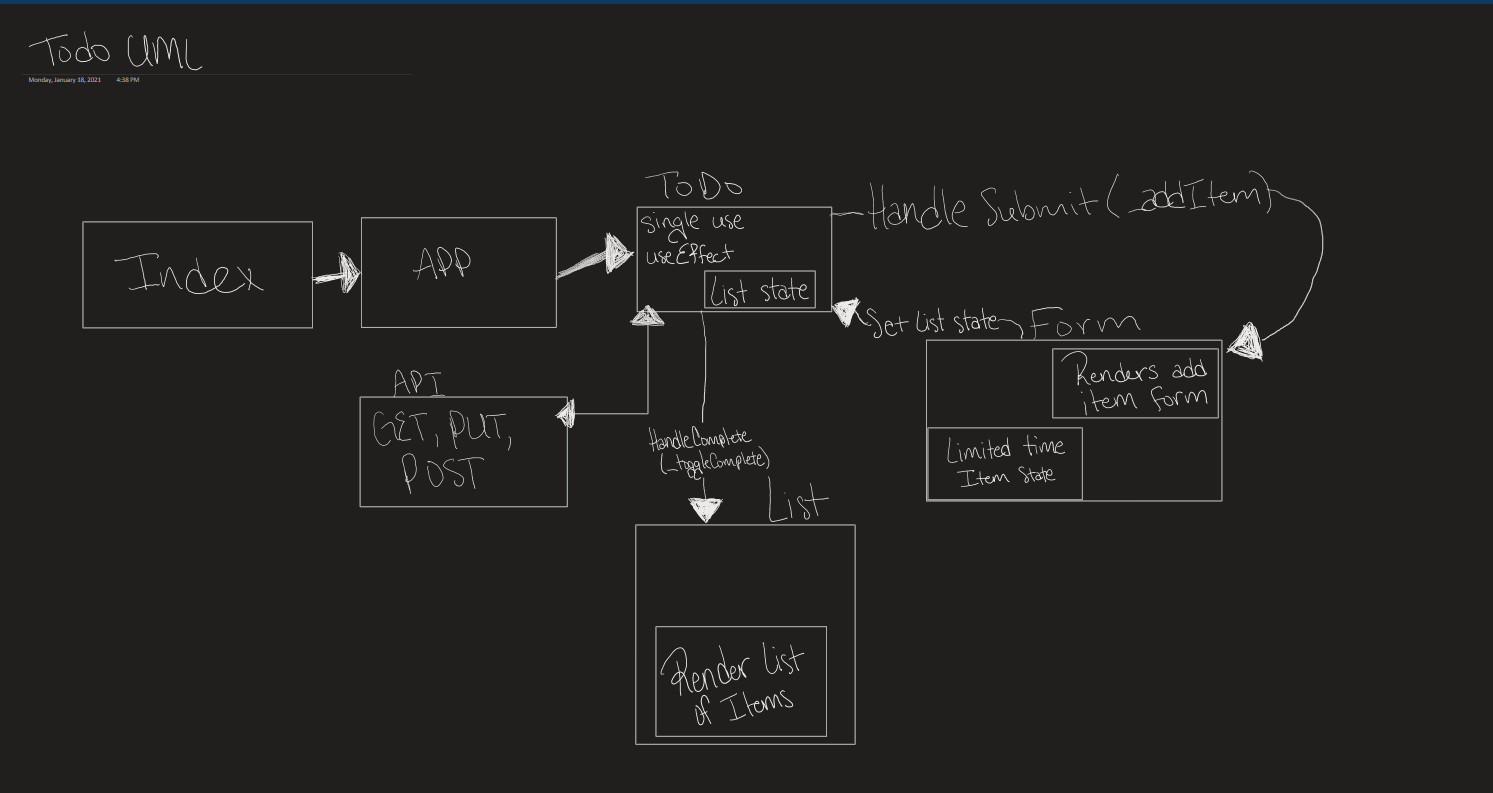 Todo UML
Monday, January 18, 2021 4:38 PM
ToDo
Handle Submit(_addItem)
single use
useEffect
List state
Index
APP
Set List state
Form
Renders add
item form
Limited time
Item State
API
GET, PUT,
POST
HandleComplete
(_toggleComplete)
List
Render List
of Items